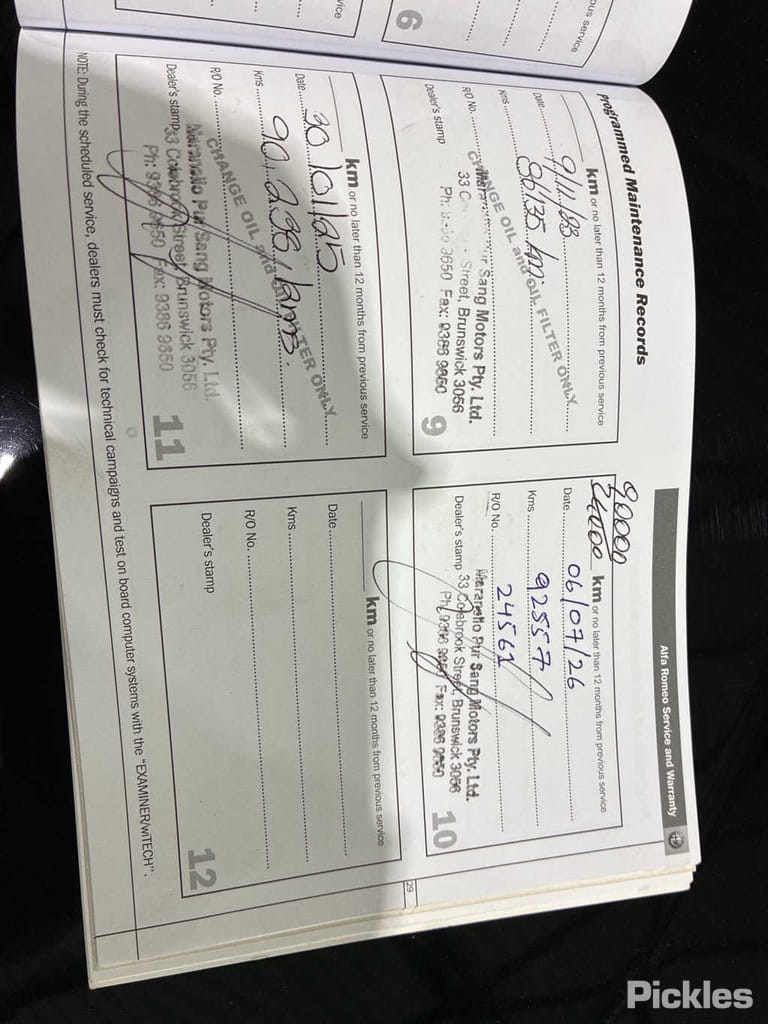 Alfa Romeo Service and Warranty
Programmed Maintenance Records
km or no later than 12 months from previous service
Date
Kms
R/O No.
Dealer's stamp
CHANGE OIL and OIL FILTER ONLY
Pur Sang Motors Pty. Ltd.
Street, Brunswick 3056
Fax: 9386 9650
9
90000
km or no later than 12 months from previous service
Date 06/07/26
Kms 92557
R/O No. 24561
Dealer's stamp
Maranello Pur Sang Motors Pty. Ltd.
33 Colebrook Street, Brunswick 3056
Ph: 9386 9650 Fax: 9386 9650
10
km or no later than 12 months from previous service
Date 30/01/25
Kms 90,238 kms.
R/O No.
Dealer's stamp
CHANGE OIL and OIL FILTER ONLY
Maranello Pur Sang Motors Pty. Ltd.
33 Colebrook Street, Brunswick 3056
Ph: 9386 9650 Fax: 9386 9650
11
km or no later than 12 months from previous service
Date
Kms
R/O No.
Dealer's stamp
12
NOTE: During the scheduled service, dealers must check for technical campaigns and test on board computer systems with the "EXAMINER/wiTECH".
29
6
Pickles